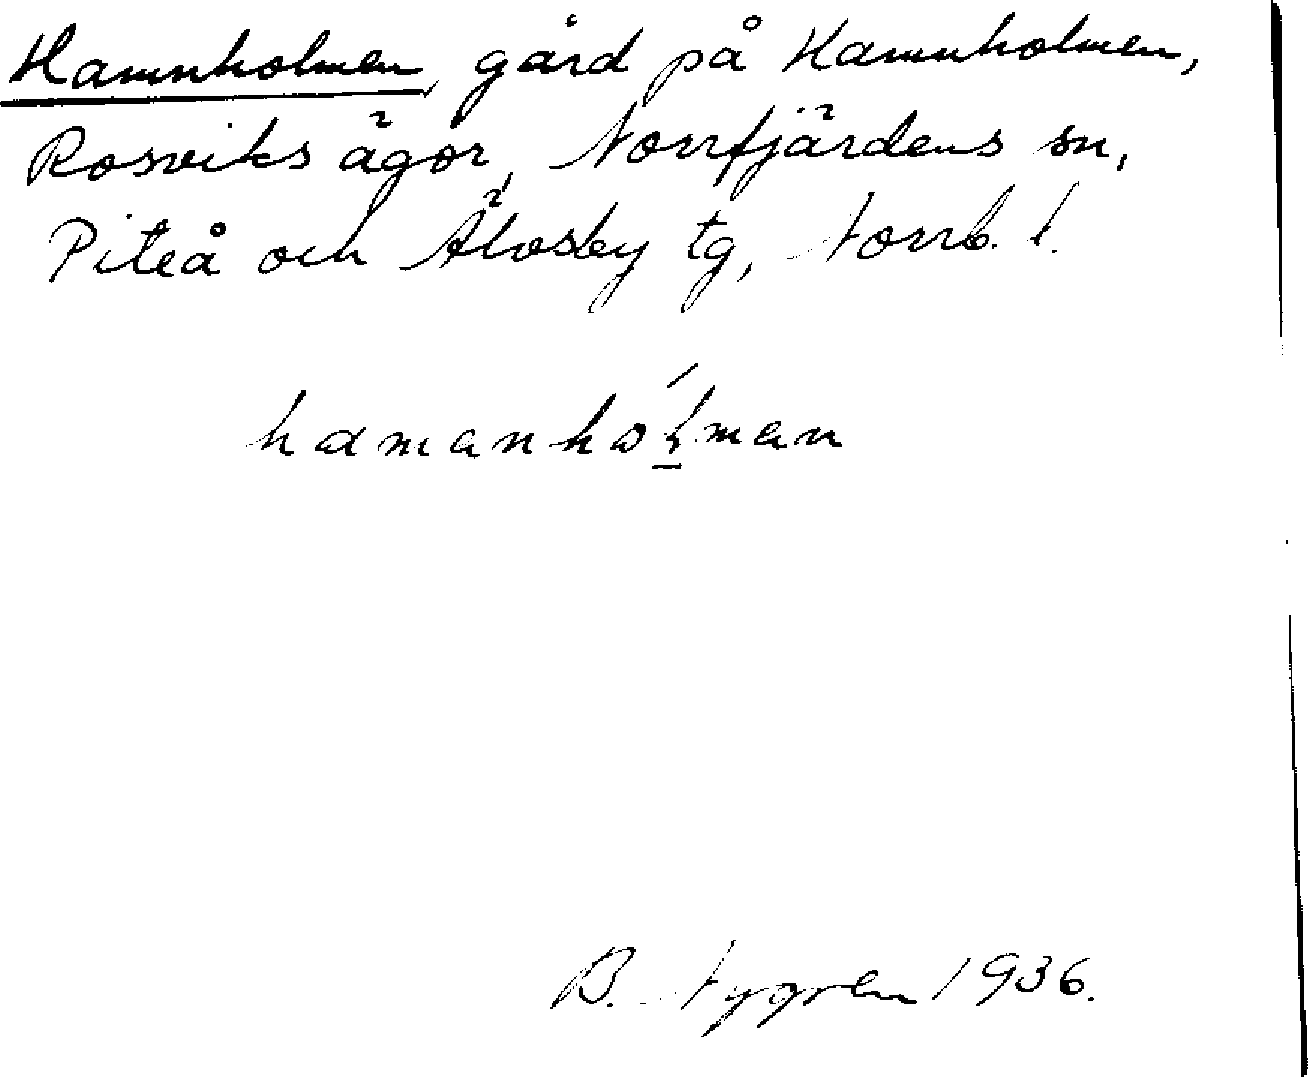 Hamnholmen, gård på Hamnholmen,
Rosviks ägor, Norrfjärdens sn,
Piteå och Älvsby tg, Norrb. l.
hamanhólman
B. Nygren 1936.